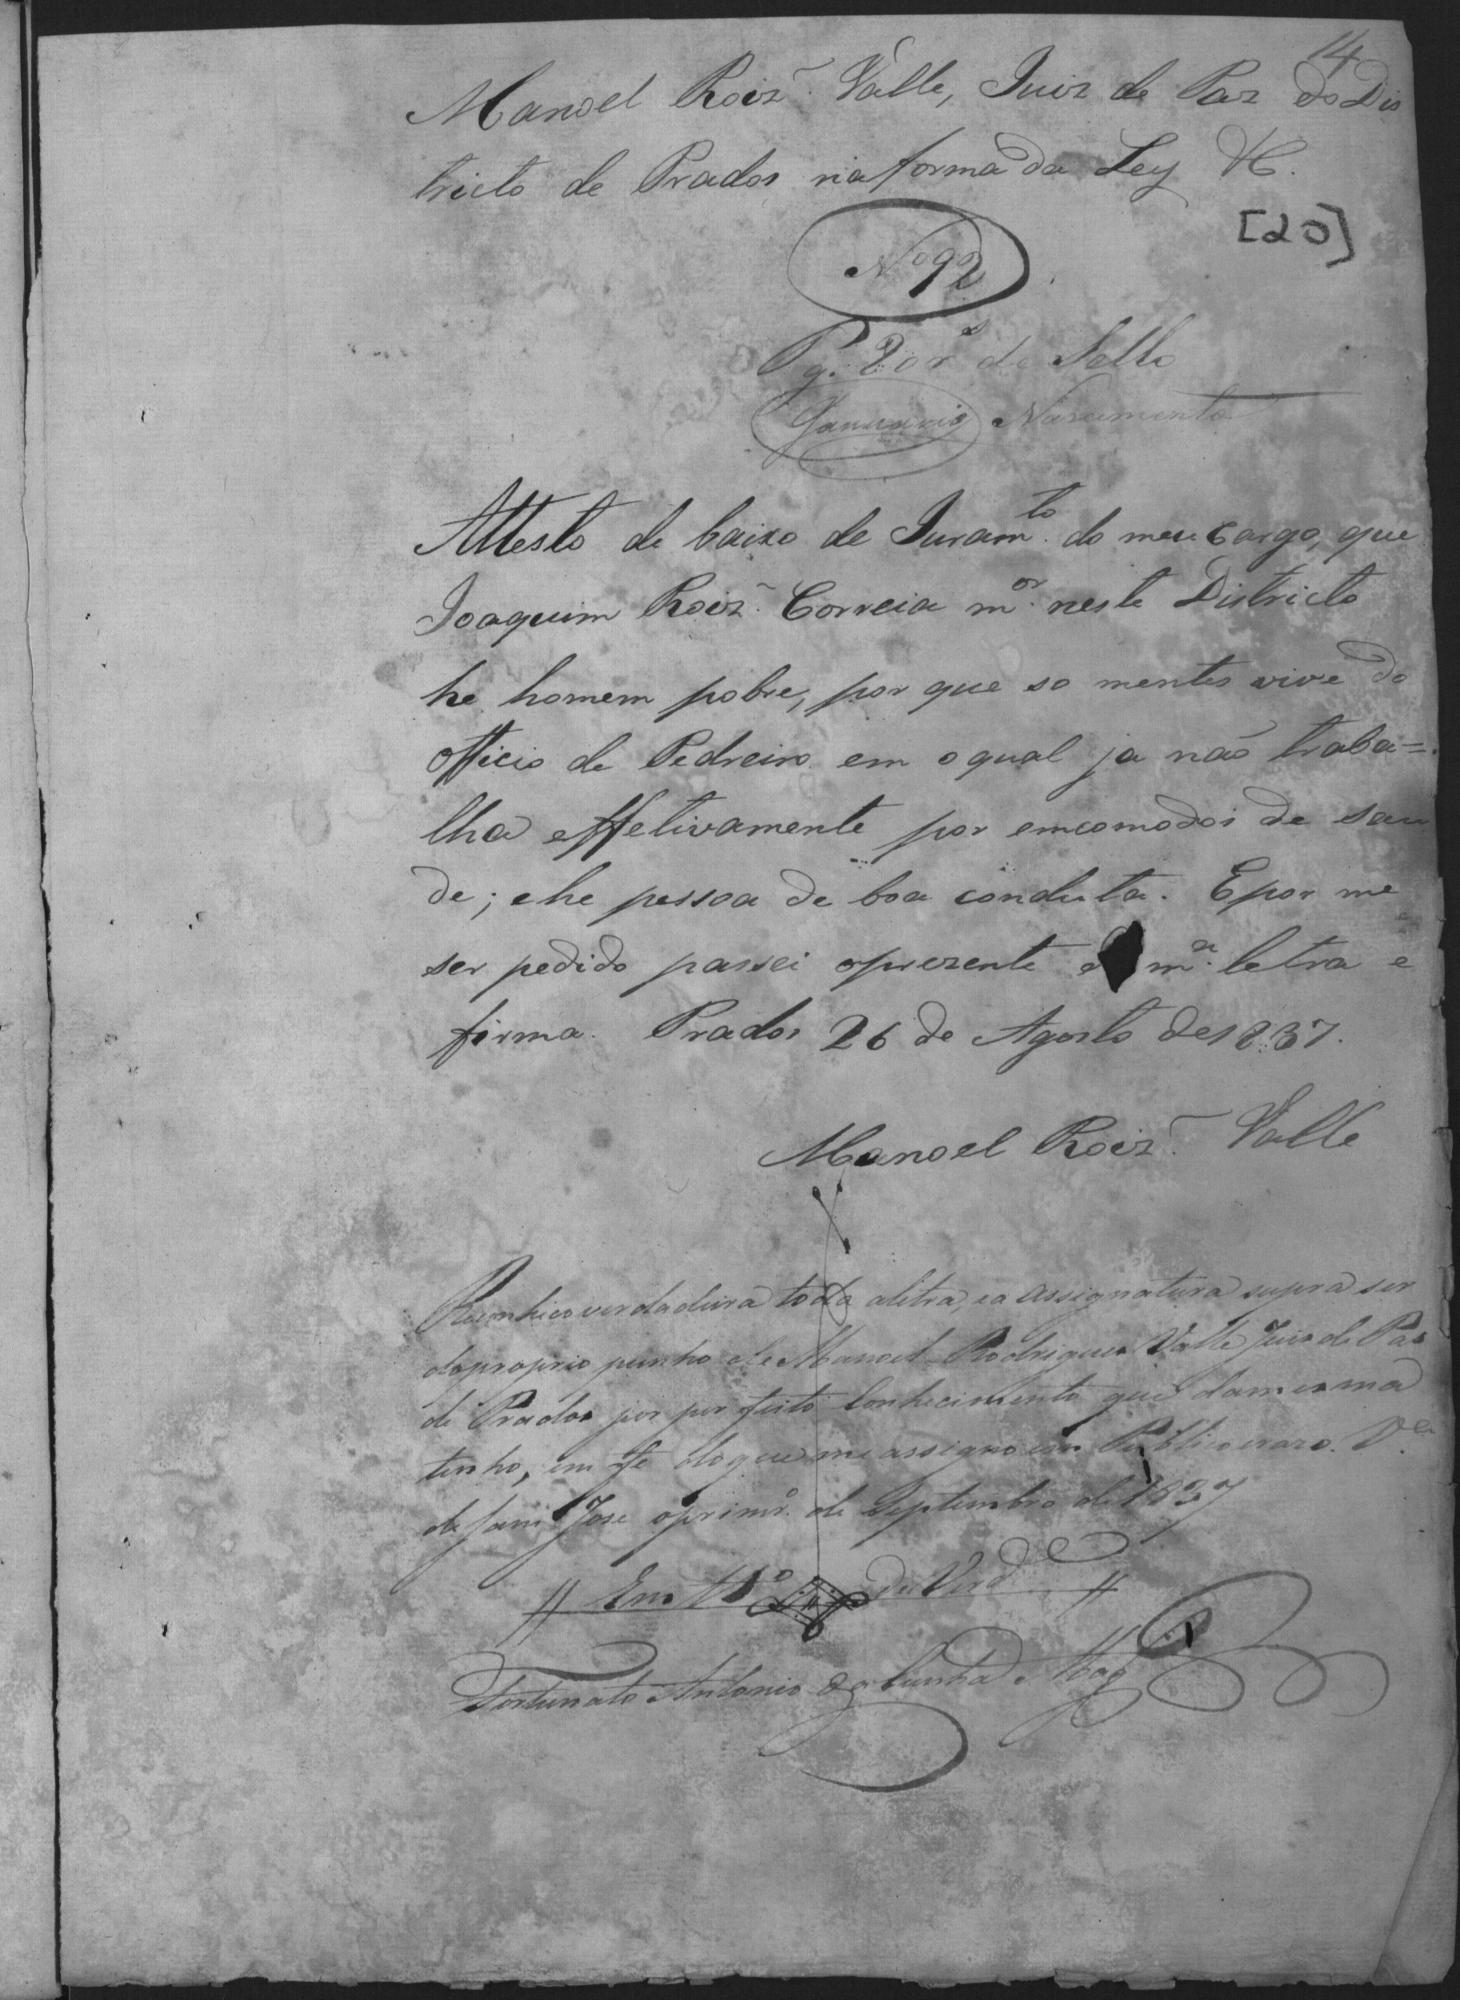 14
Manoel Roiz̃ Valle, Juiz de Paz do Dis
tricto de Prados na forma da Ley &C.
[20]
Nº 92
Pg. 20 rs de Sello
Januario Nascimento
Attesto de baixo de Juramto do meu cargo, que
Joaquim Roiz̃ Correia mor neste Districto
he homem pobre, por que so mentes vive do
officio de Pedreiro em o qual ja não traba=
lha effetivamente por emcomodos de sau
de; e he pessoa de boa conduta. E por me
ser pedido passei o prezente ma letra e
firma. Prados 26 de Agosto de 1837.
Manoel Roiz̃ Valle
Reconheco verdadeira toda a letra, e a assignatura supra ser
do proprio punho de Manoel Rodrigues Valle Juiz de Paz
de Prados por perfeito conhecimento que da mesma
tenho, em fe do que me assigno em Publico e razo. Va
de Sam Jose o primro de Septembro de 1837
Em Tº de Verde
Fortunato Antonio da Cunha Mag